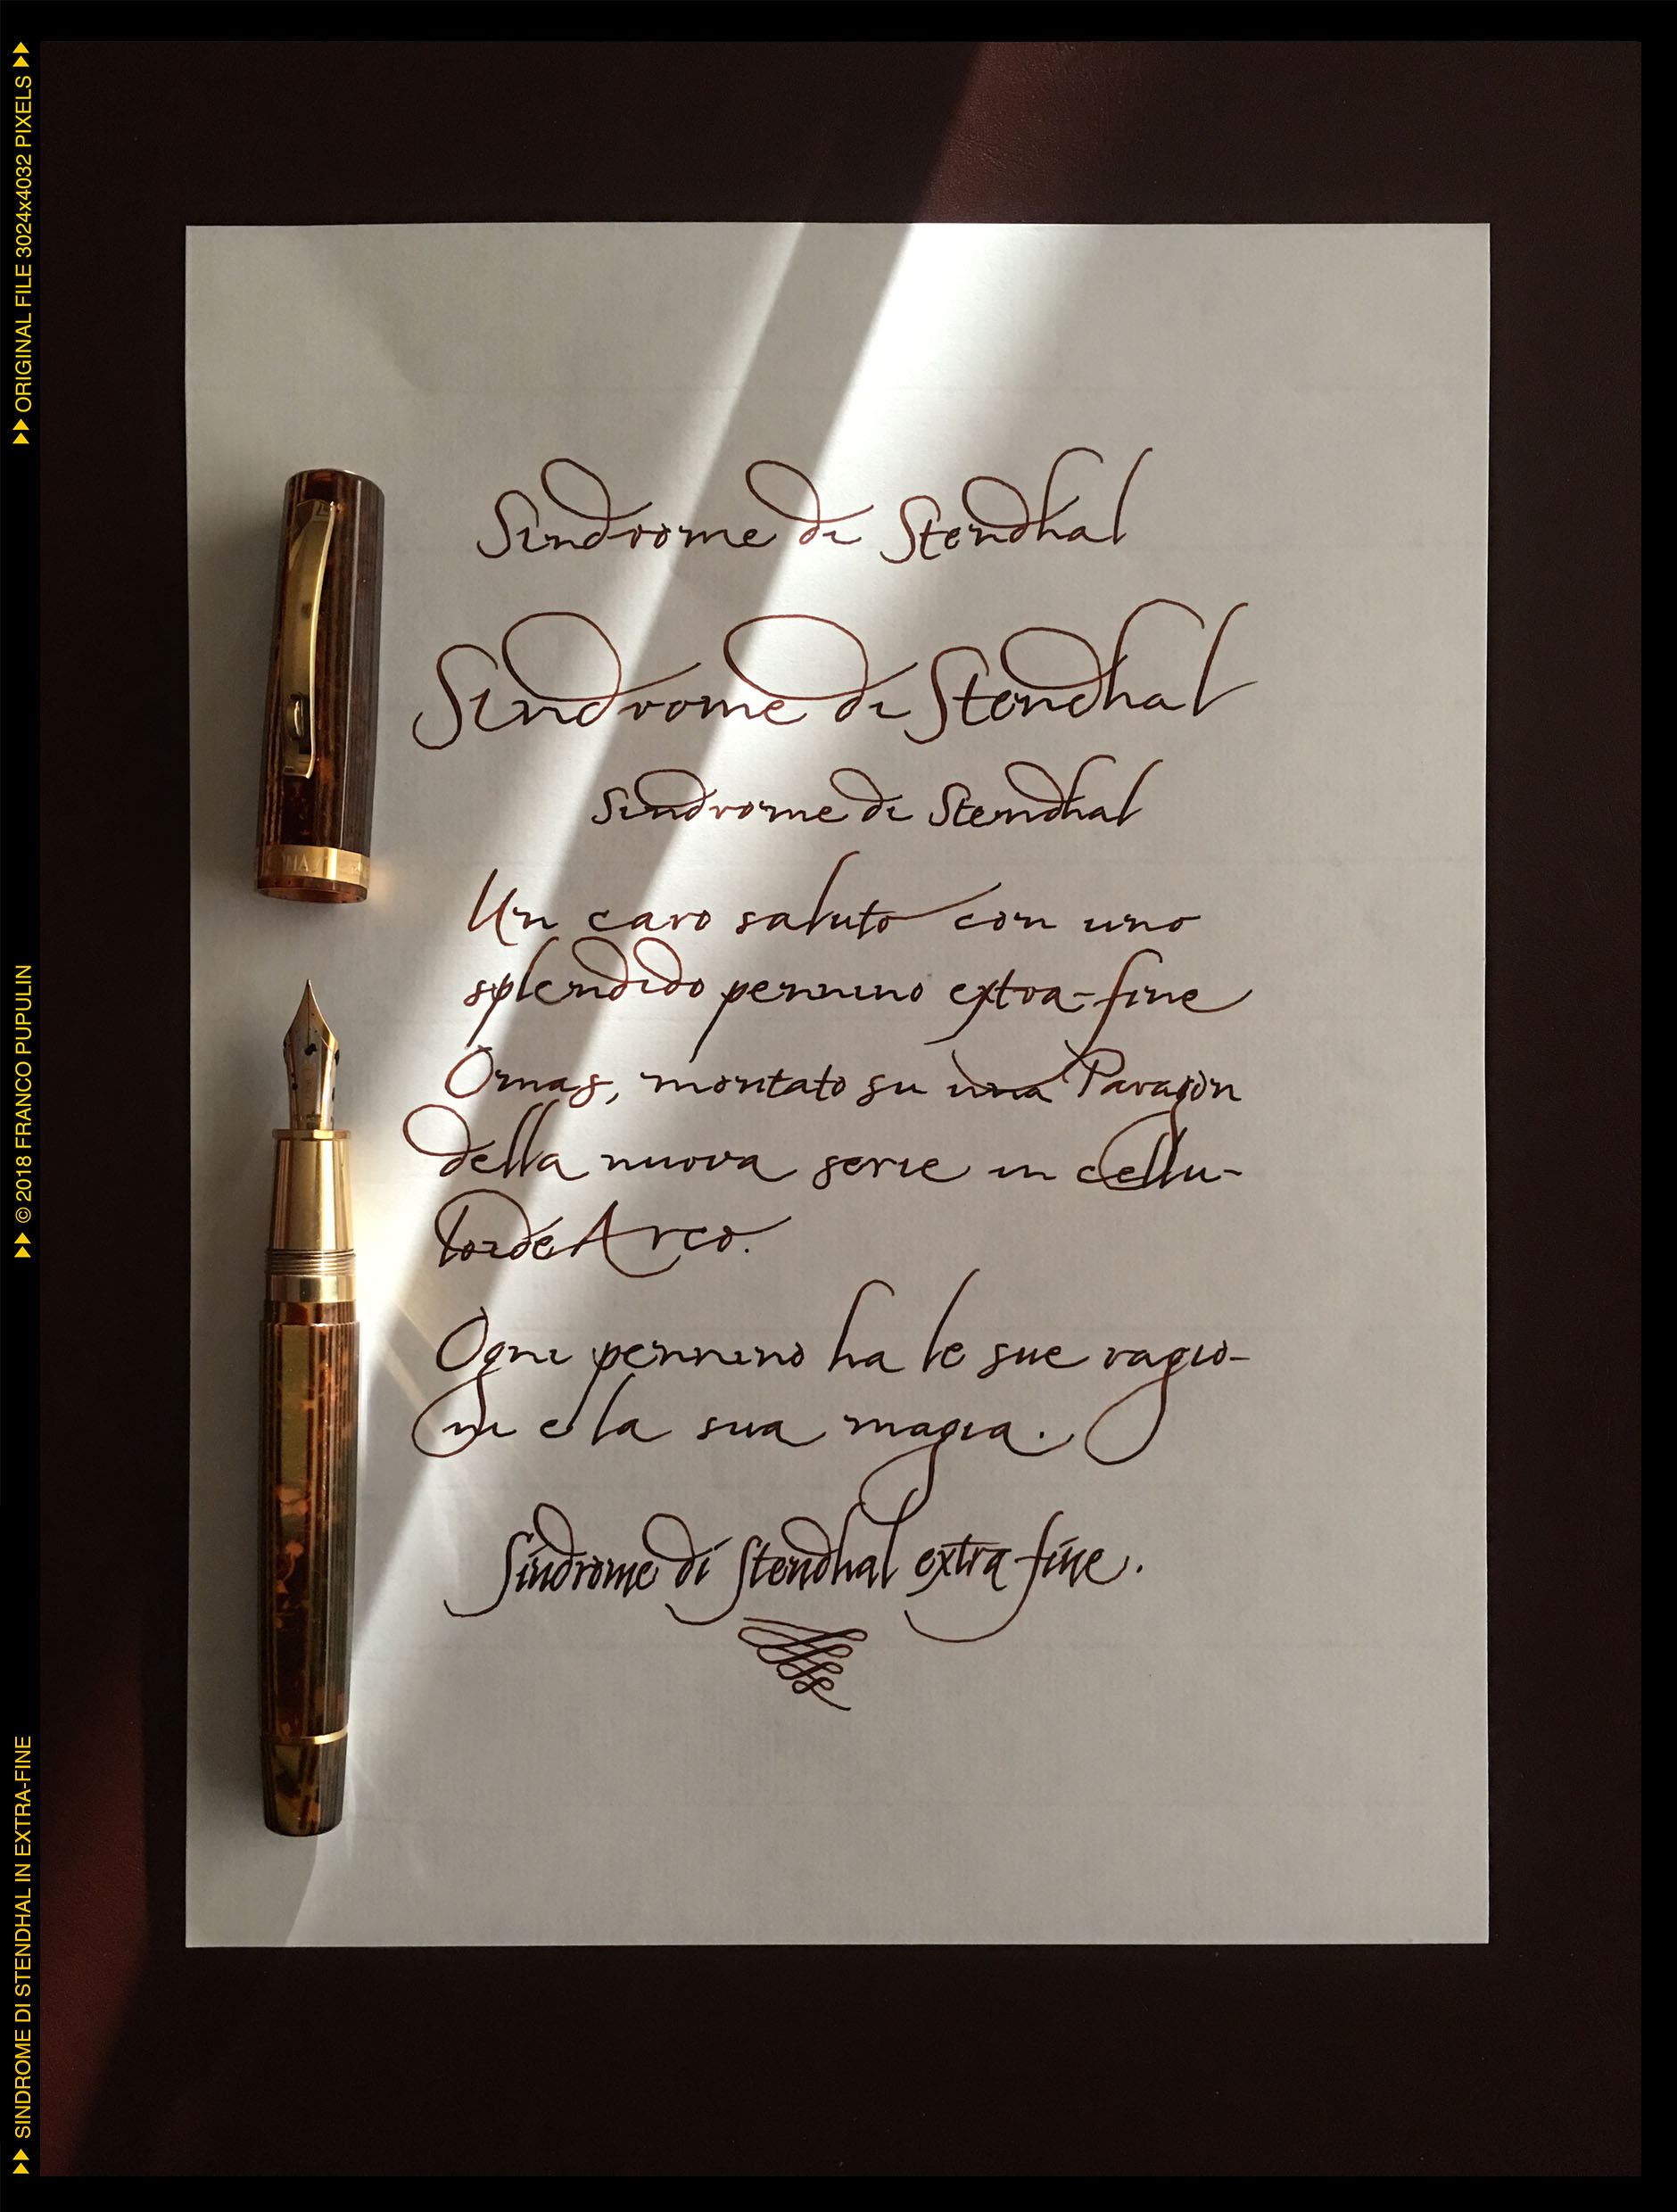 Sindrome di Stendhal
Sindrome di Stendhal
Sindrome di Stendhal
Un caro saluto con uno
splendido pennino extra-fine
Omas, montato su una Paragon
della nuova serie in cellu-
loide Arco.
Ogni pennino ha le sue ragio-
ni e la sua magia.
Sindrome di Stendhal extra fine.
OMAS
▶▶ ORIGINAL FILE 3024x4032 PIXELS ▶▶
▶▶ © 2018 FRANCO PUPULIN
▶▶ SINDROME DI STENDHAL IN EXTRA-FINE